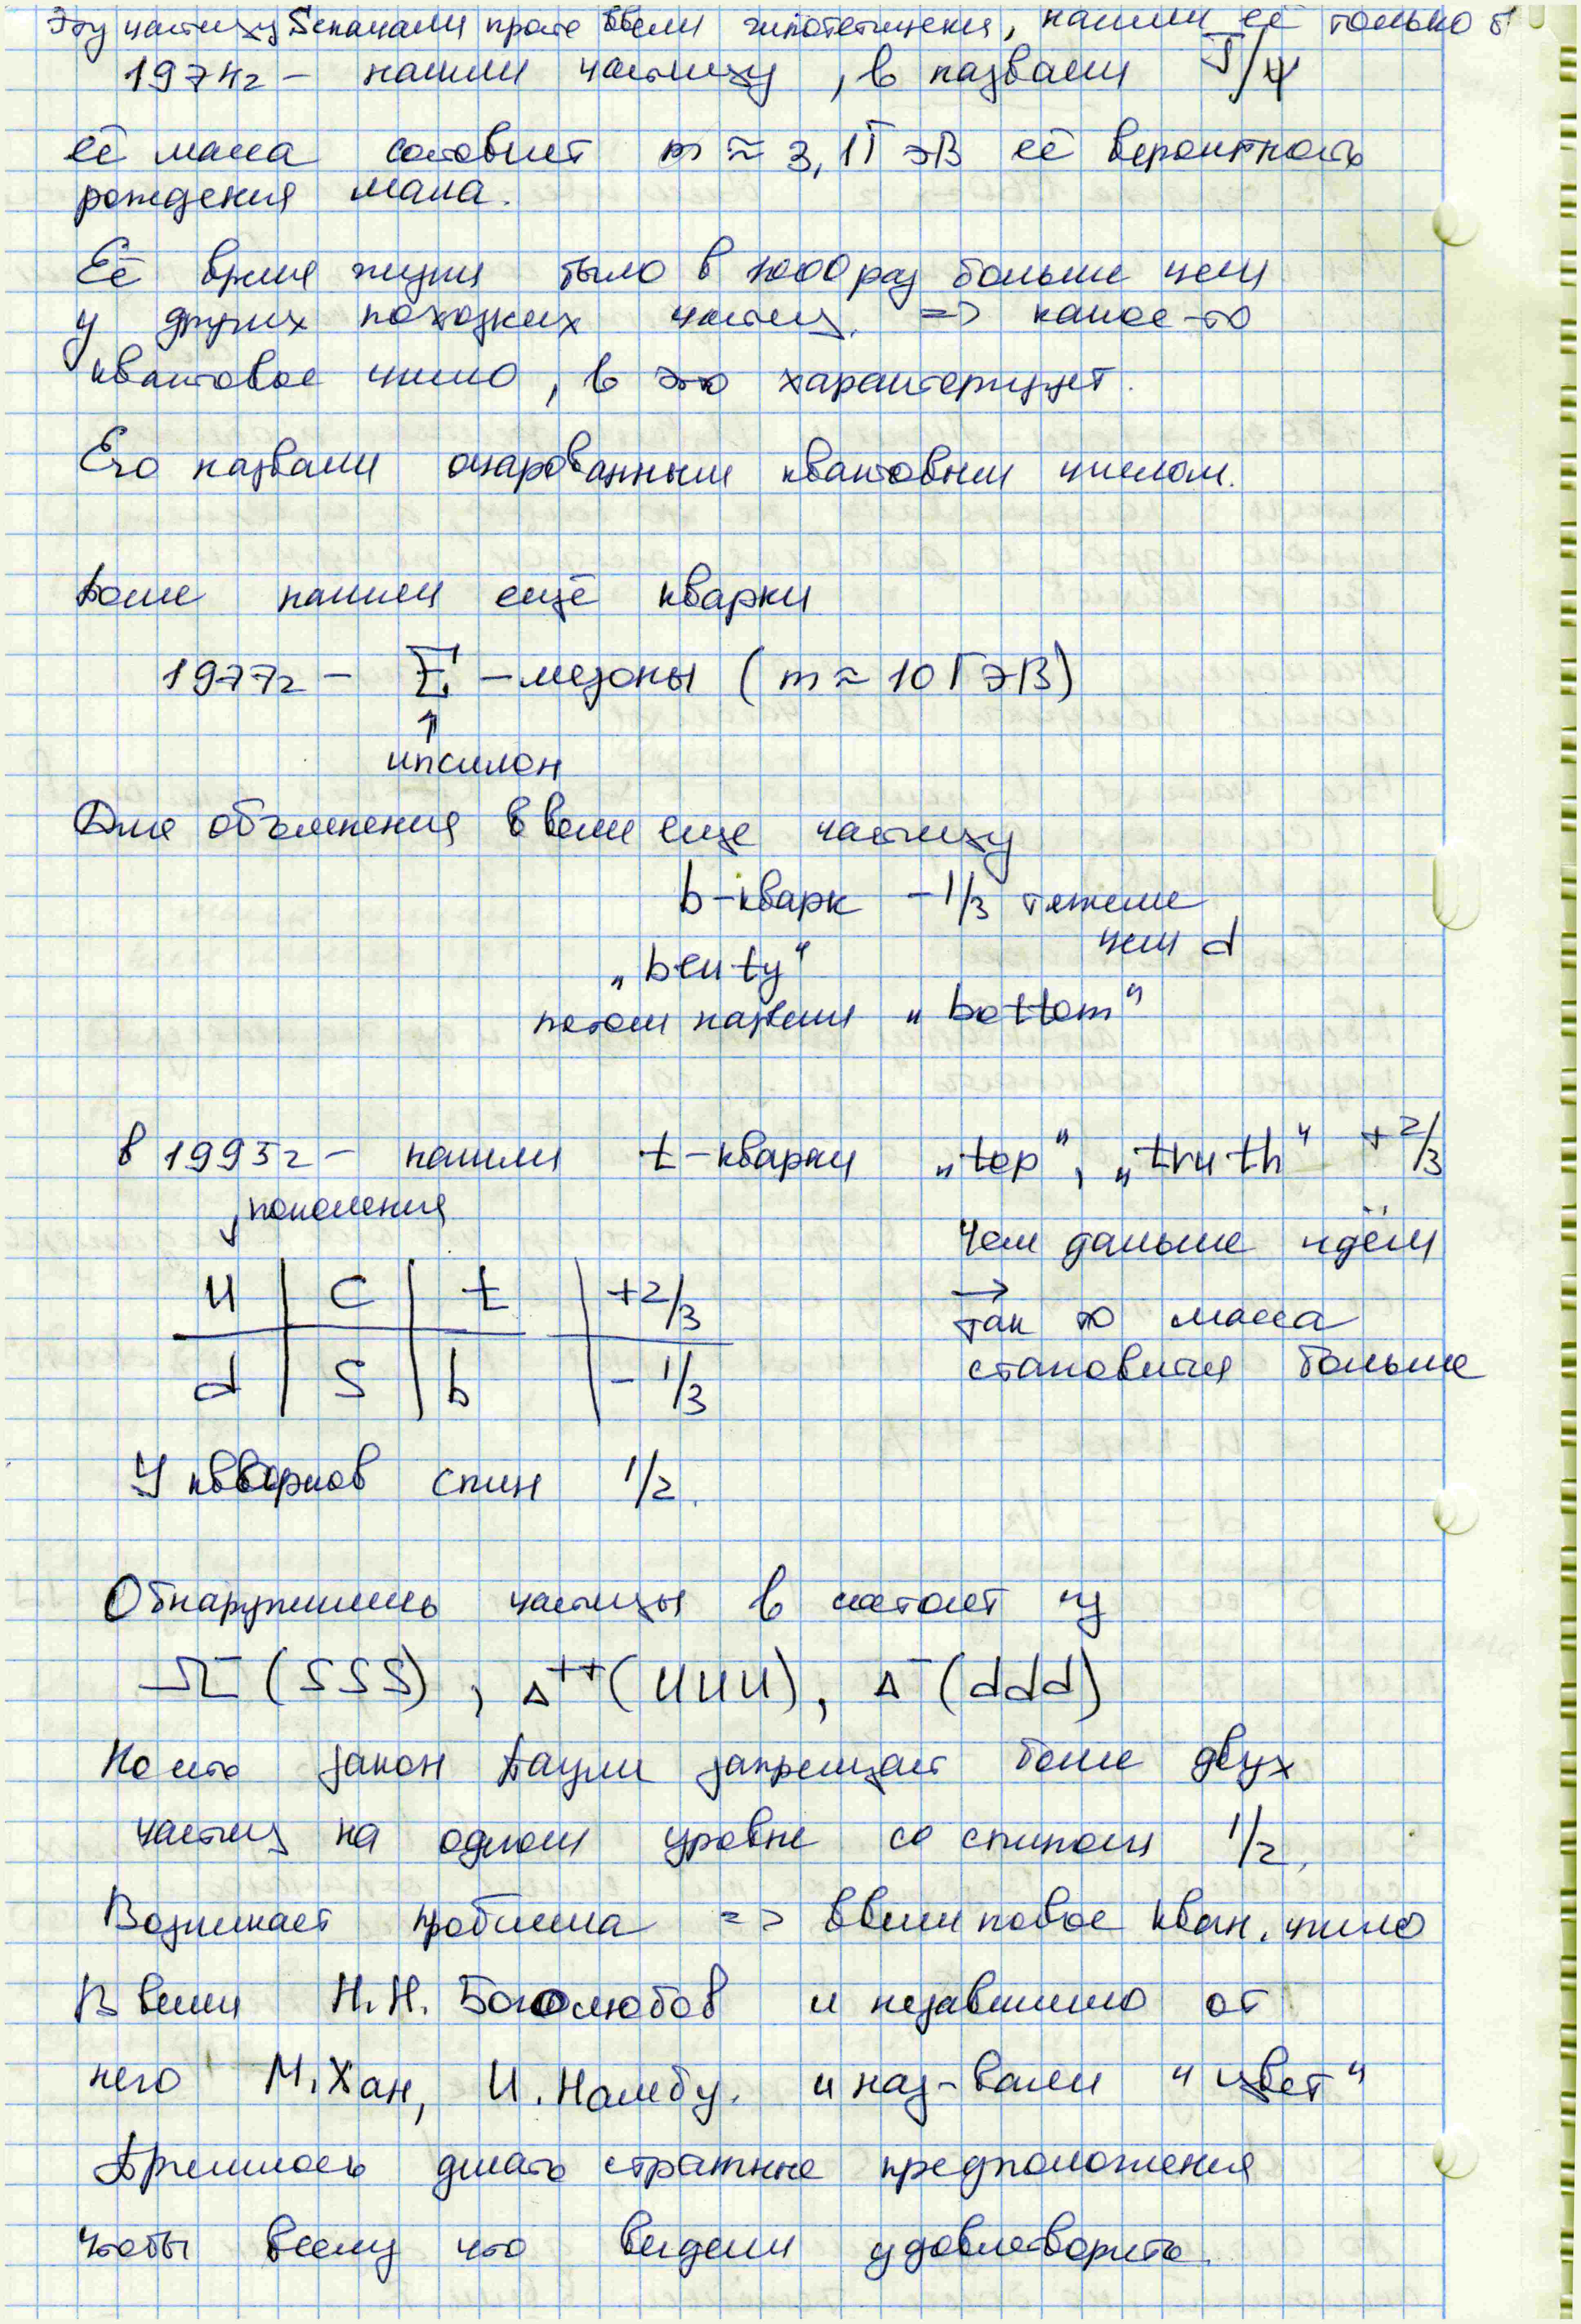 Эту частицу сначала просто ввели гипотетически, нашли её только в
1974г – нашли частицу, её назвали J/ψ
её масса составляет m ≈ 3,1 ГэВ её вероятность
рождения мала.
Её время жизни было в 1000 раз больше чем
у других похожих частиц. => какое-то
квантовое число, её это характеризует.
Его назвали очарованным квантовым числом.
Позже нашли ещё кварки
1977г – Σ – мезоны (m ≈ 10 ГэВ)
↑
ипсилон
Для объяснения ввели еще частицу
b-кварк – 1/3 тяжелее
чем d
„beuty“
потом назвали „bottom“
в 1995г – нашли t-кварки „top“, „truth“ +2/3
поколения
Чем дальше идём
u | c | t | +2/3
→
так то масса
d | s | b | -1/3
становится больше
У кварков спин 1/2.
Обнаружились частицы состоят из
Ω⁻ (sss), Δ⁺⁺ (uuu), Δ⁻ (ddd)
Но что закон Паули запрещает более двух
частиц на одном уровне со спином 1/2.
Возникает проблема => ввели новое кван. число
Ввели Н.Н. Боголюбов и независимо от
него М.Хан, И.Намбу. и наз-вали "цвет"
Пришлось делать странные предположения
чтобы всему что видели удовлетворить.